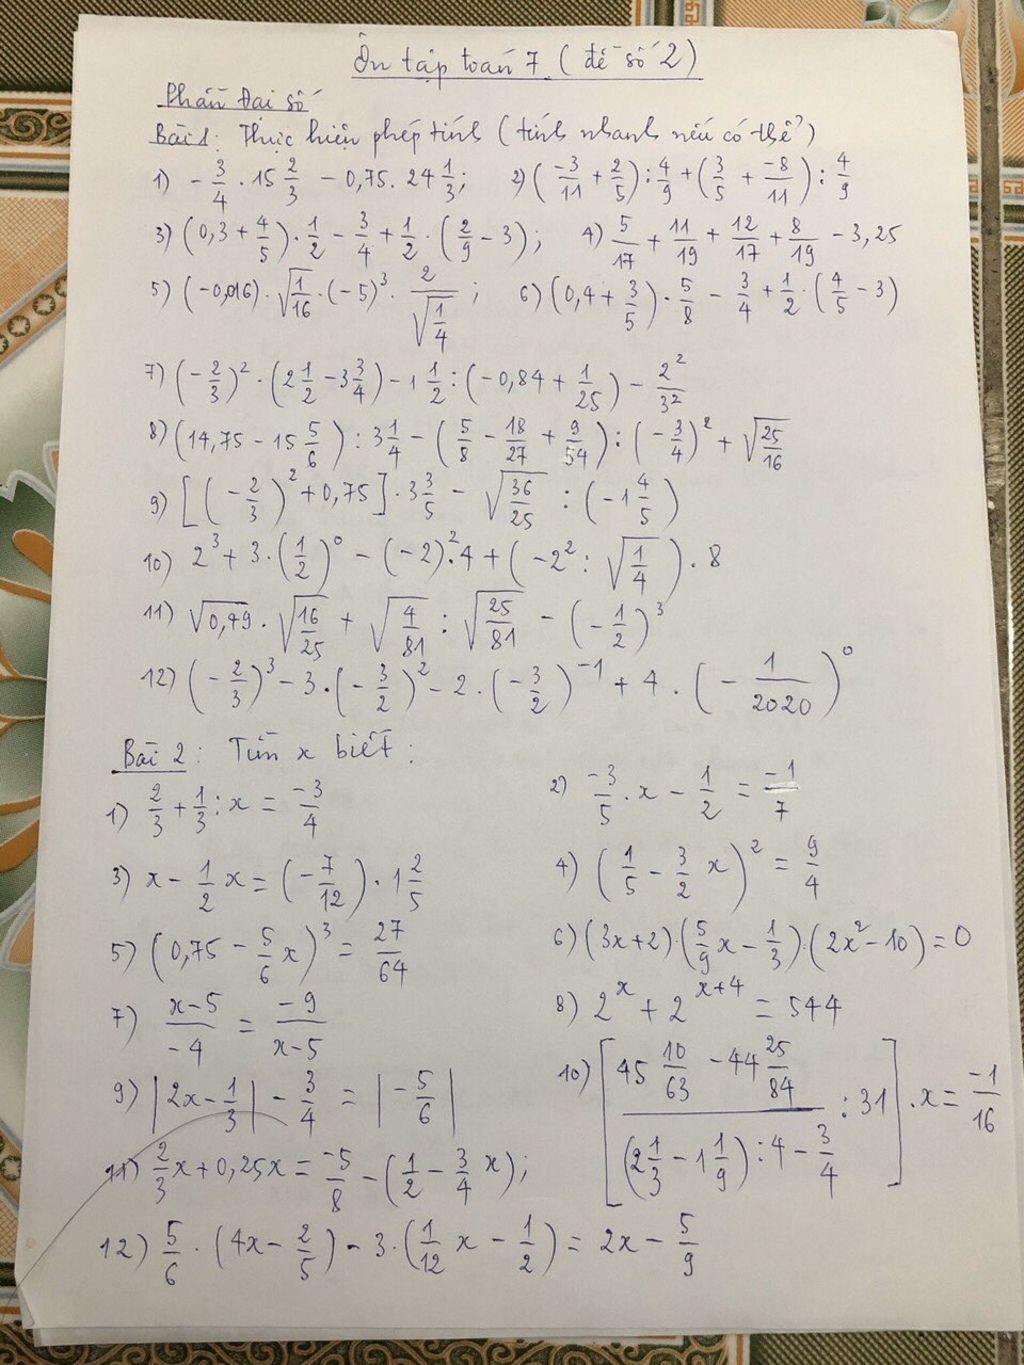 Ôn tập toán 7 (đề số 2)
Phần Đại số
Bài 1: Thực hiện phép tính (tính nhanh nếu có thể)
1) -3/4 . 15 2/3 - 0,75. 24 1/3; 2) (-3/11 + 2/5) : 4/9 + (3/5 + -8/11) : 4/9
3) (0,3 + 4/5) . 1/2 - 3/4 + 1/2 . (2/9 - 3); 4) 5/17 + 11/19 + 12/17 + 8/19 - 3,25
5) (-0,016) . √(1/16) . (-5)³ . 2/√(1/4); 6) (0,4 + 3/5) . 5/8 - 3/4 + 1/2 . (4/5 - 3)
7) (-2/3)² . (2 1/2 - 3 3/4) - 1 1/2 : (-0,84 + 1/25) - 2²/3²
8) (14,75 - 15 5/6) : 3 1/4 - (5/8 - 18/27 + 9/54) : (-3/4)² + √(25/16)
9) [(-2/3)² + 0,75] . 3 3/5 - √(36/25) : (-1 4/5)
10) 2³ + 3 . (1/2)⁰ - (-2)² . 4 + (-2² : √(1/4)) . 8
11) √0,49 . √(16/25) + √(4/81) : √(25/81) - (-1/2)³
12) (-2/3)³ - 3 . (-3/2)² - 2 . (-3/2)⁻¹ + 4 . (-1/2020)⁰
Bài 2: Tìm x biết:
1) 2/3 + 1/3 : x = -3/4 2) -3/5 . x - 1/2 = -1/7
3) x - 1/2 x = (-7/12) . 1 2/5 4) (1/5 - 3/2 x)² = 9/4
5) (0,75 - 5/6 x)³ = 27/64 6) (3x+2).(5/9 x - 1/3).(2x² - 10) = 0
7) (x-5)/-4 = -9/(x-5) 8) 2ˣ + 2ˣ⁺⁴ = 544
9) |2x - 1/3| - 3/4 = |-5/6| 10) [(45 10/63 - 44 25/84)/((2 1/3 - 1 1/9) : 4 - 3/4) : 31] . x = -1/16
11) 2/3 x + 0,25x = -5/8 - (1/2 - 3/4 x);
12) 5/6 . (4x - 2/5) - 3 . (1/12 x - 1/2) = 2x - 5/9